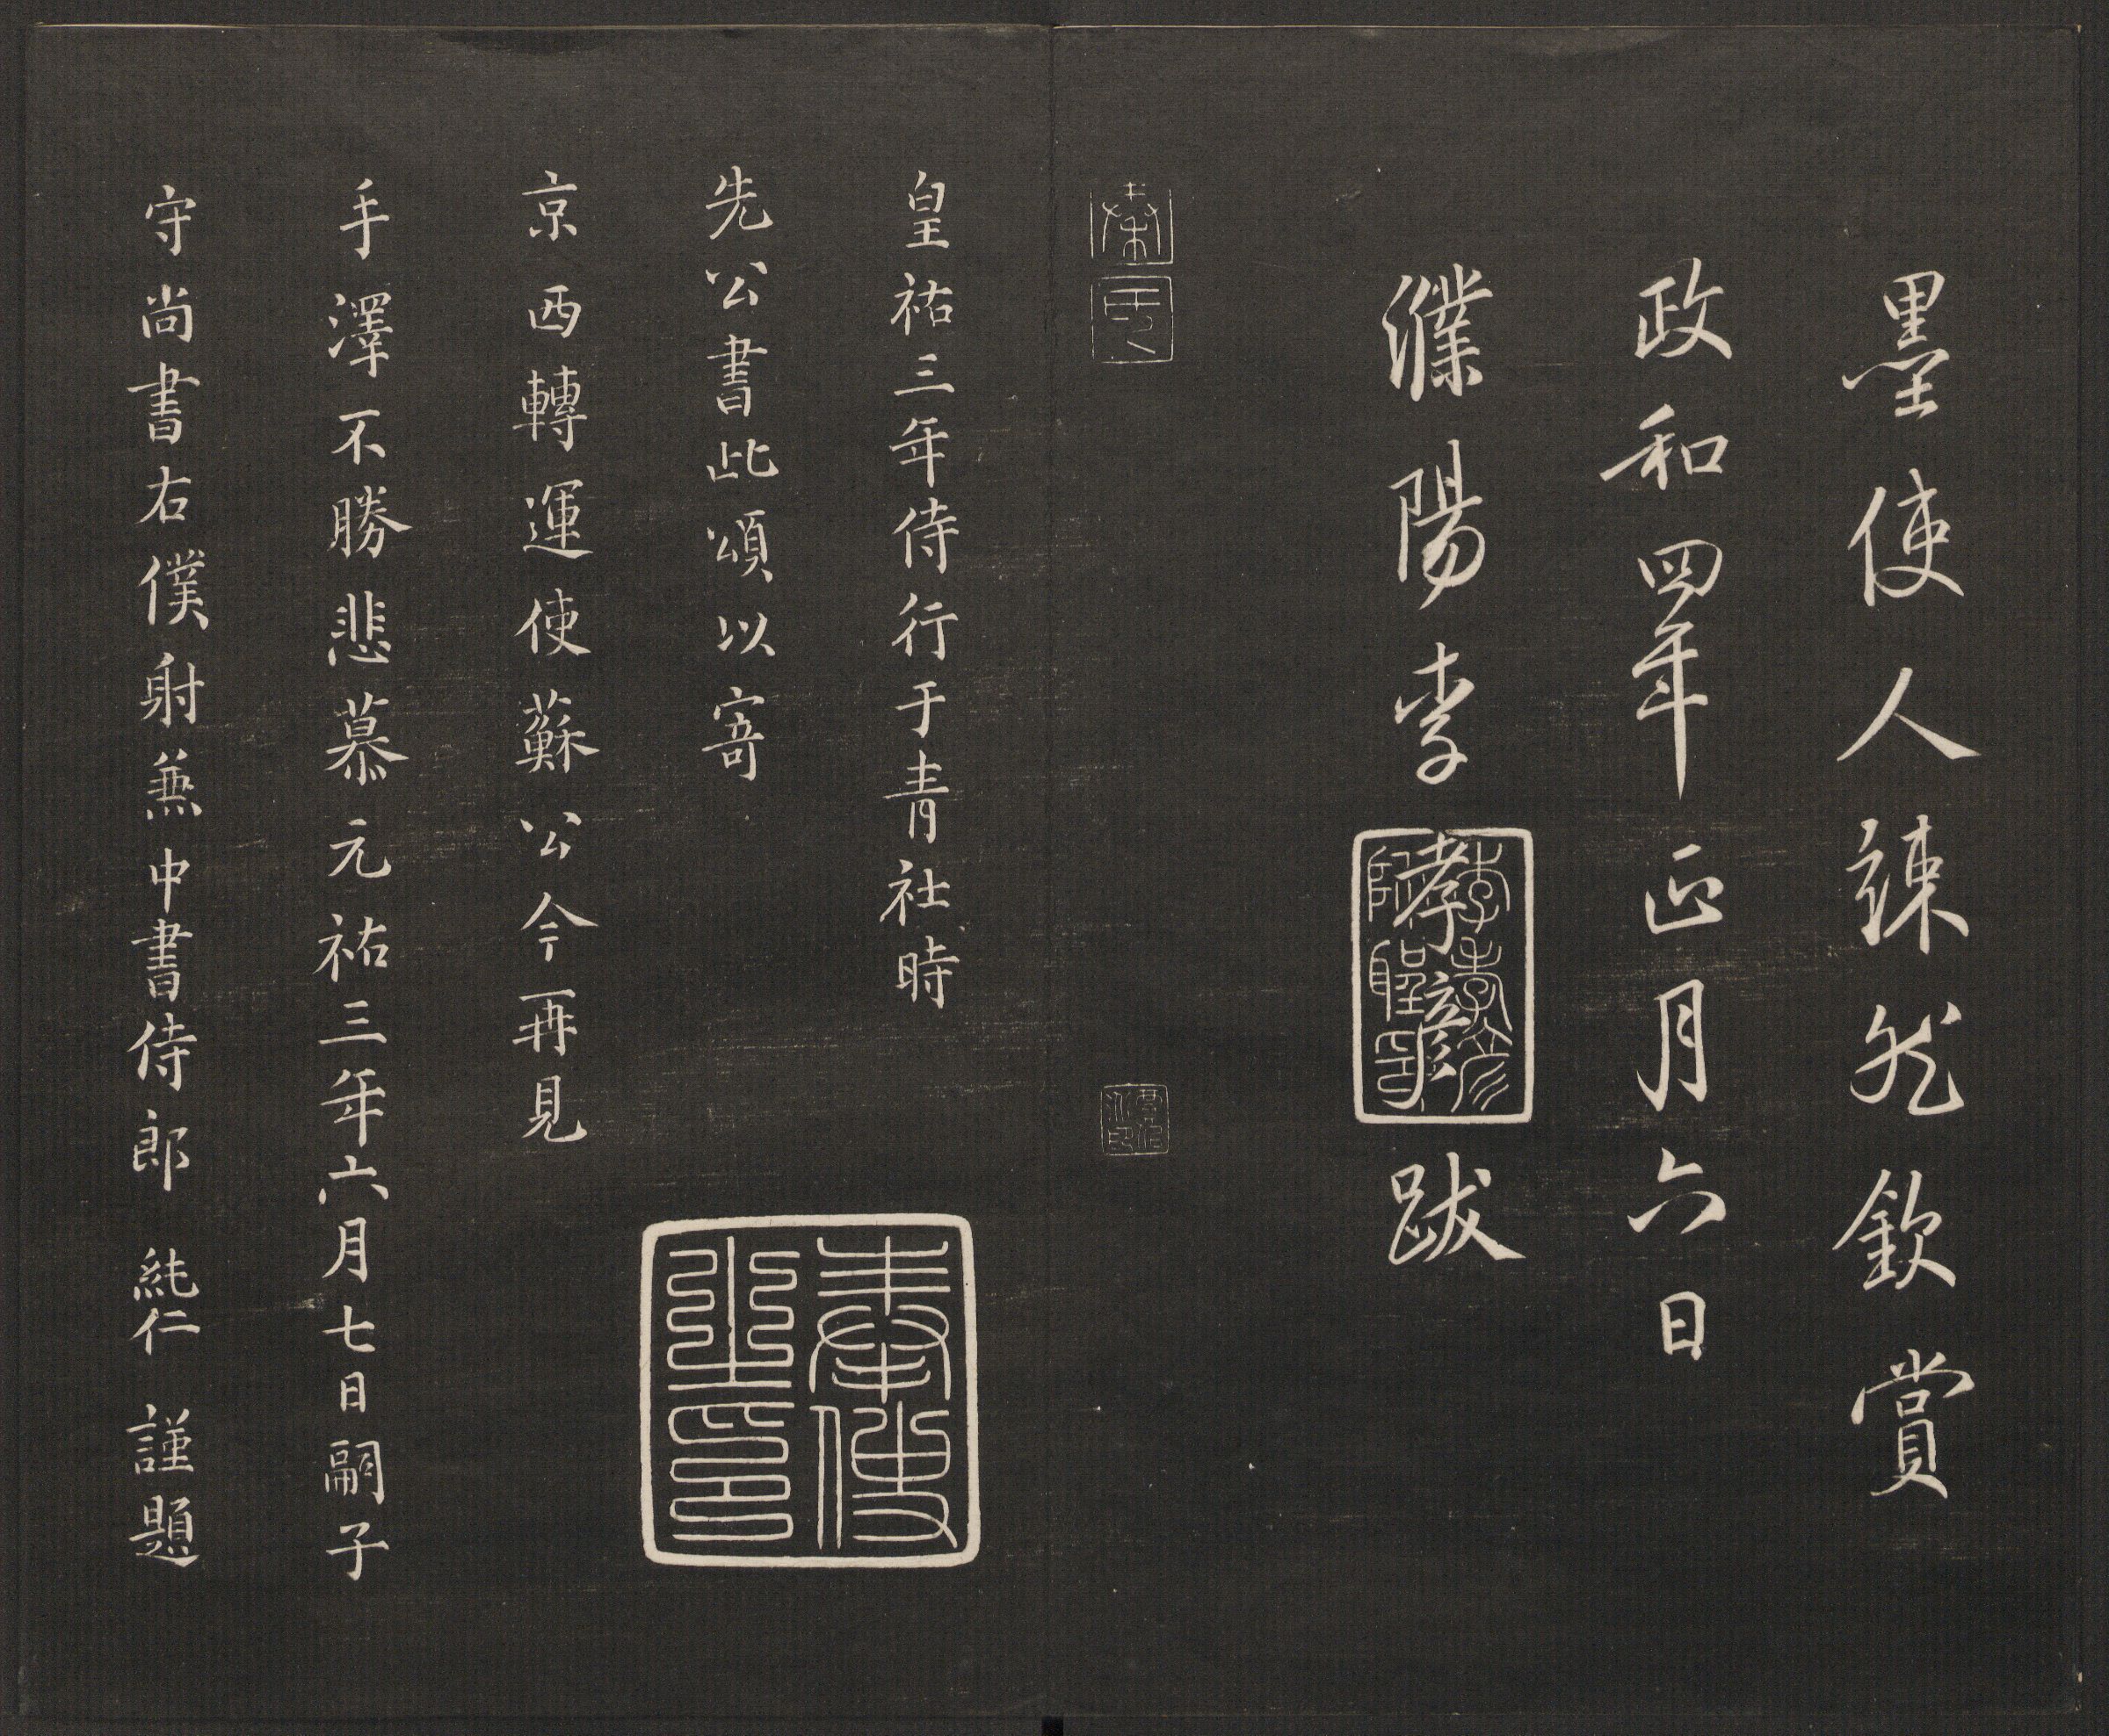 墨使人竦然欽賞
政和四年正月六日
濮陽李孝彥跋
秦氏
皇祐三年侍行于青社時
先公書此頌以寄
京西轉運使蘇公今再見
手澤不勝悲慕元祐三年六月七日嗣子
守尚書右僕射兼中書侍郎純仁謹題